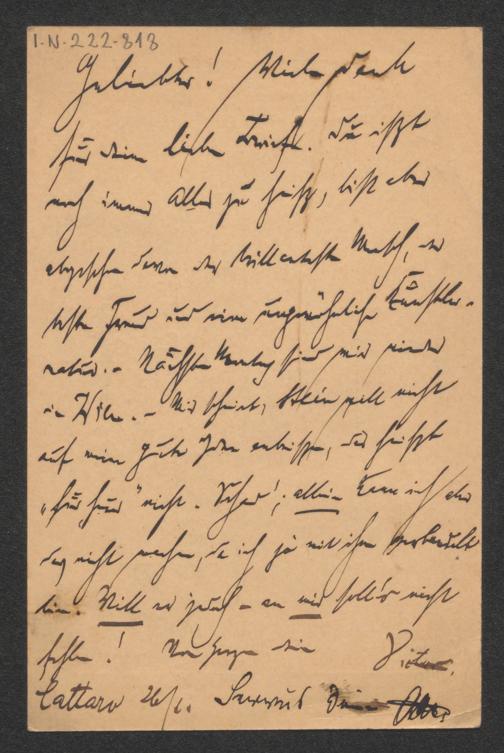 I.N. 222.818
Geliebter! Vielen Dank
für deine lieben Briefe. Du ißt
noch immer alles zu heiß, bist aber
abgesehen davon der brillanteste Mensch, der
beste Freund und eine ungewöhnliche Künstler-
natur. – Nächsten Montag sind wir wieder
in Wien. – Mir scheint, Stein will nicht
auf meine gute Idee anbeißen, das heißt
"für", "nicht. Schad'; allein kann ich aber
das nicht machen, da ich ja mit ihm verbandelt
bin. Will er jedoch – an mir soll's nicht
fehlen! Von Herzen dein Victor.
Cattaro 26/ Servus Dein